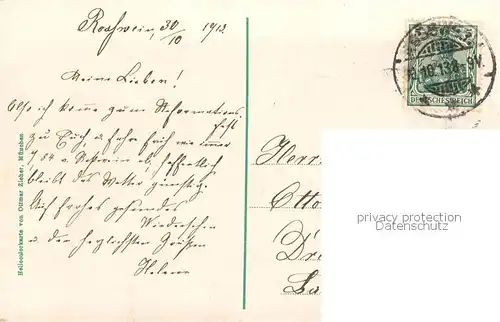 Roßwein, 30/10 1913
Meine Lieben!
Also ich komme zum Reformations-
fest
zu Euch, u. fahre früh wie immer
7 54 v. Roßwein ab, hoffentlich
bleibt das Wetter günstig.
Auf frohes gesundes
Wiedersehen
u. den herzlichsten Grüßen
Helene
Heliocolorkarte von Ottmar Zieher, München
DEUTSCHES REICH
Herrn
Otto
privacy protection
Datenschutz